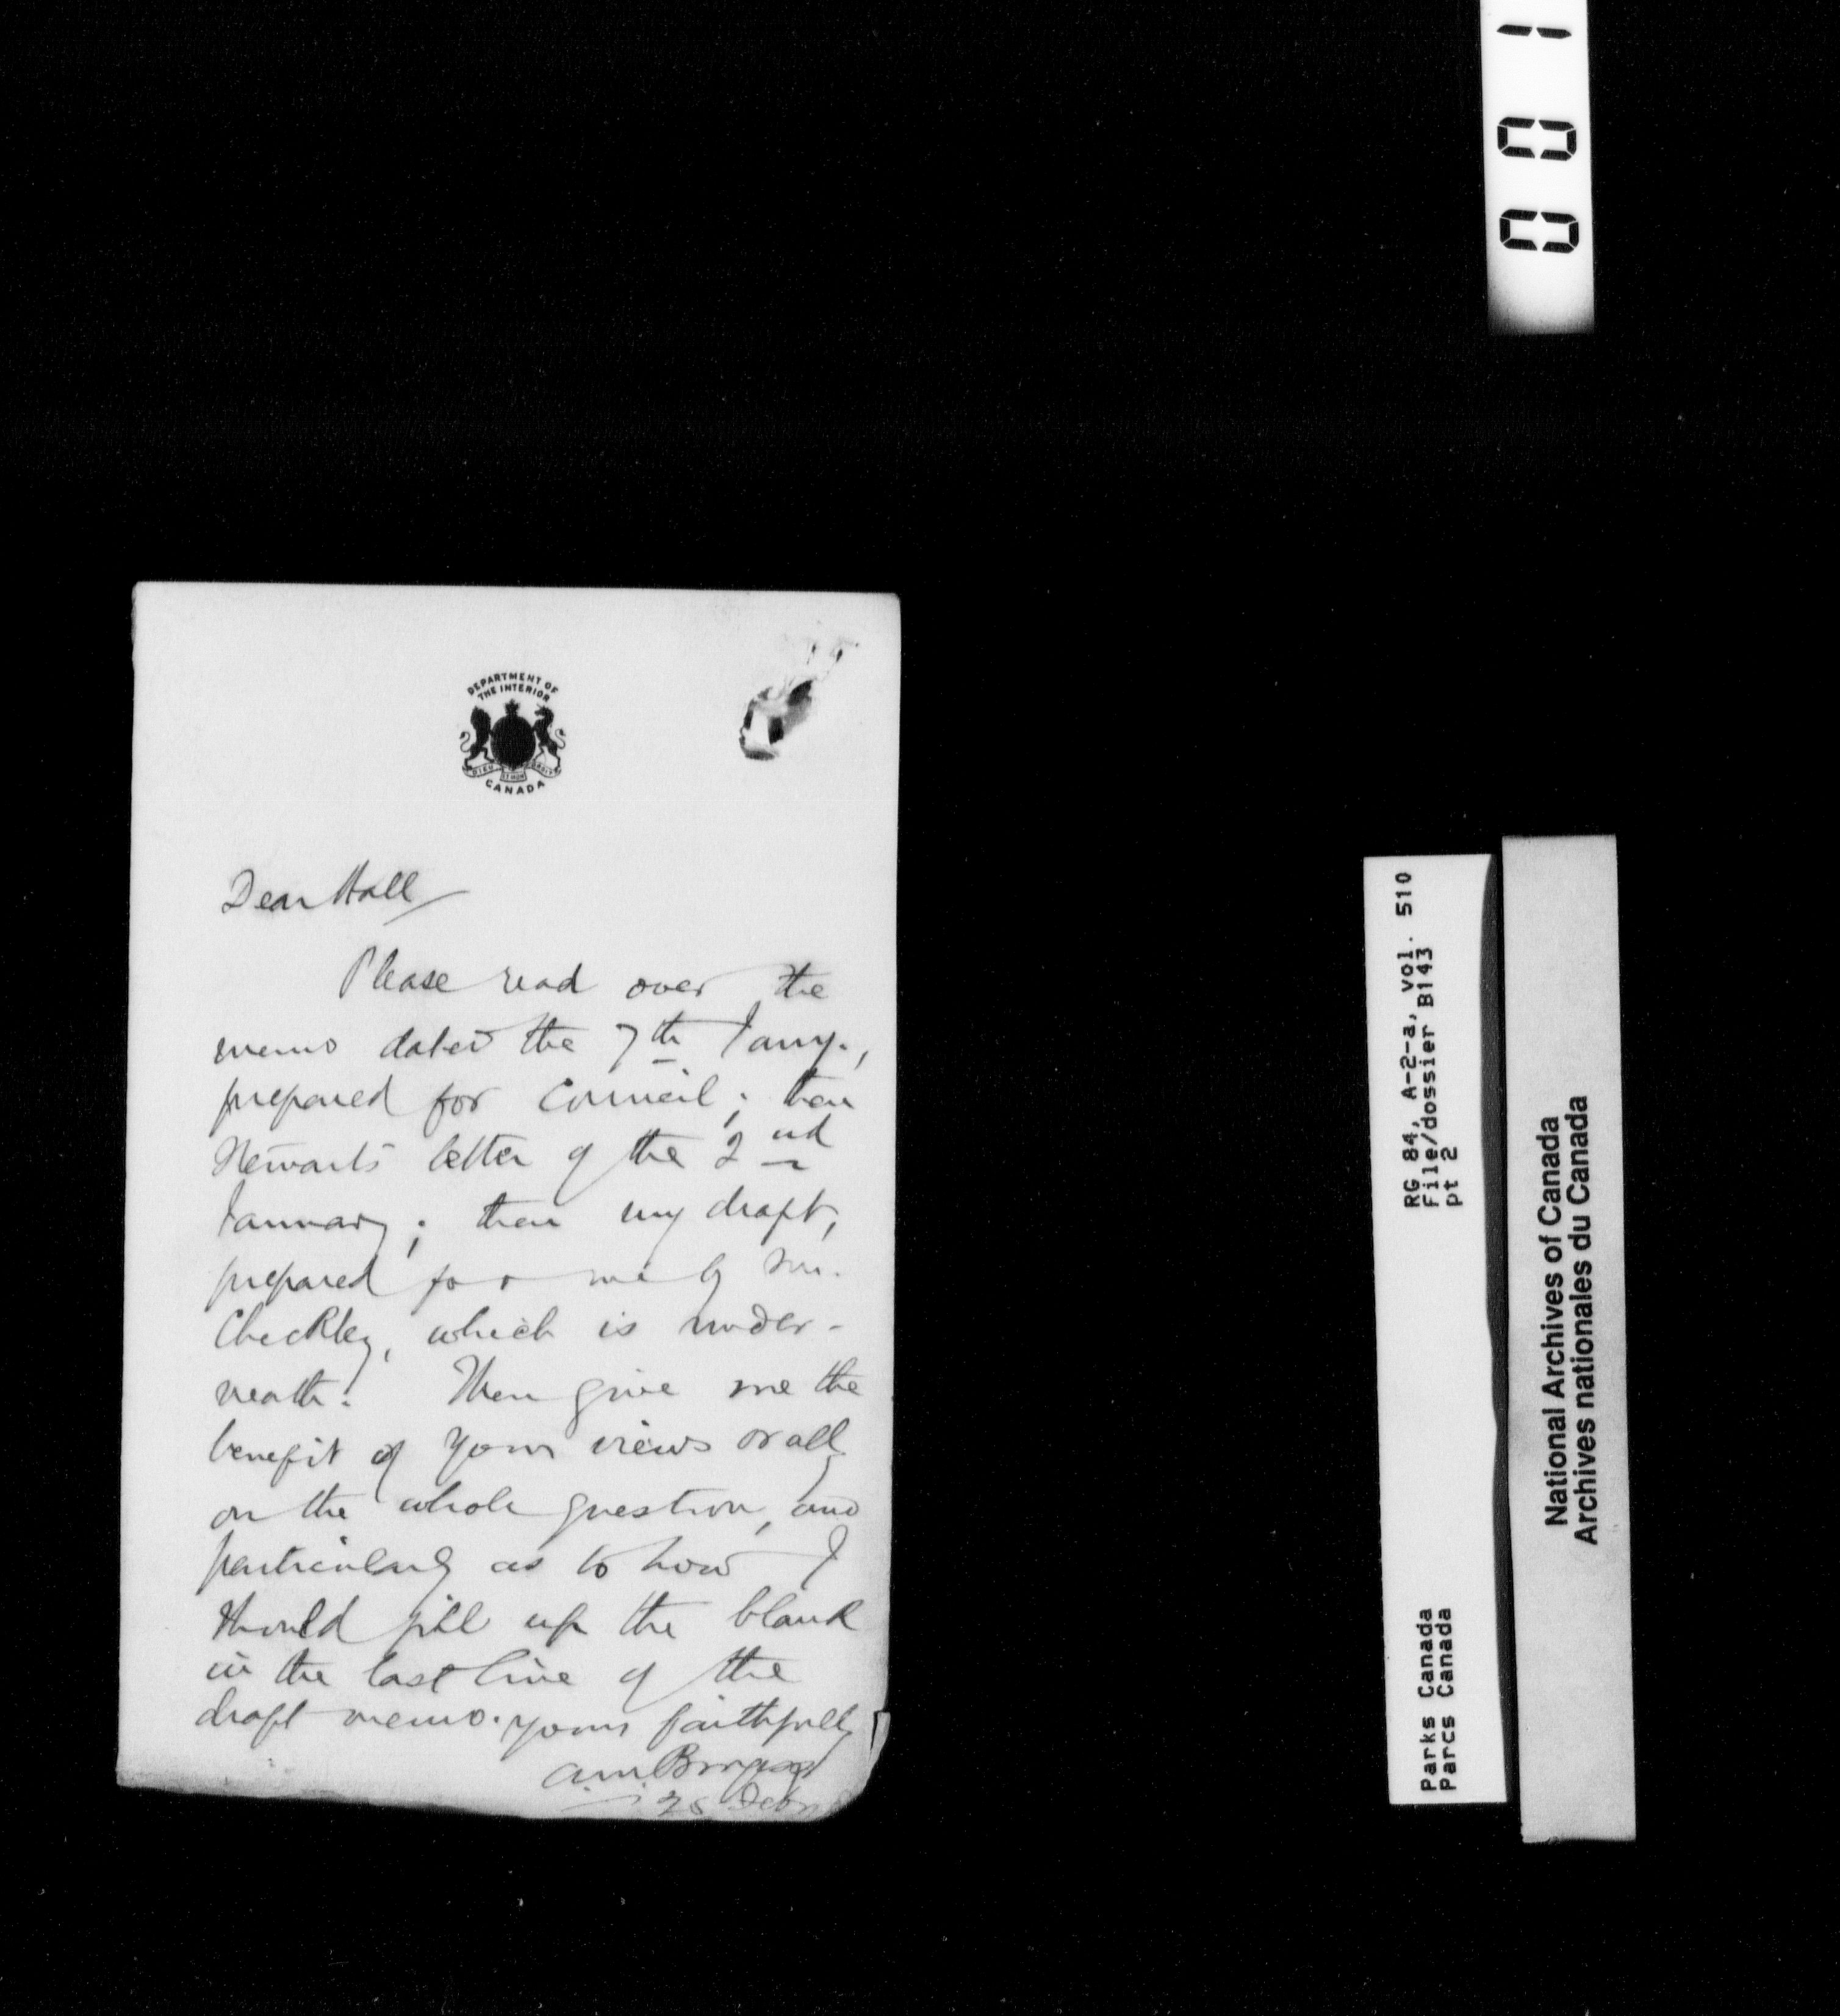 001
DEPARTMENT OF
THE INTERIOR
CANADA
Dear Hall
Please read over the
memo dated the 7th Jany.,
prepared for Council; then
Stewart's letter of the 2nd
January; then my draft,
prepared for me by Mr.
Checkley, which is under-
neath. Then give me the
benefit of your views orally
on the whole question, and
particularly as to how I
should fill up the blank
in the last line of the
draft memo. Yours faithfully
A.M. Burgess
RG 84, A-2-a, vol. 510
File/dossier B143
pt 2
Parks Canada
Parcs Canada
National Archives of Canada
Archives nationales du Canada